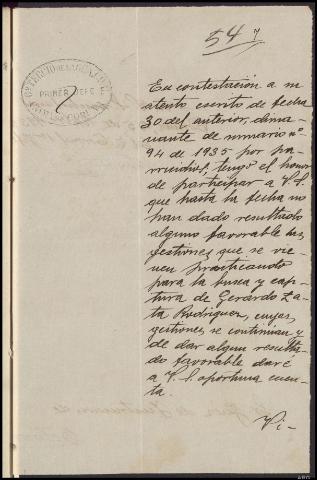 547
PRIMER JEFE
En contestación a su
atento escrito de fecha
30 del anterior, dima-
nante de sumario nº
94 de 1935 por pa-
rricidio, tengo el honor
de participar a V.S.
que hasta la fecha no
han dado resultado
alguno favorable las
gestiones que se vie-
nen practicando
para la busca y cap-
tura de Gerardo Za-
ta Rodriguez, cuyas
gestiones se continuan y
de dar algun resulta-
do favorable daré
a V.S. oportuna cuen-
ta.
Vi-